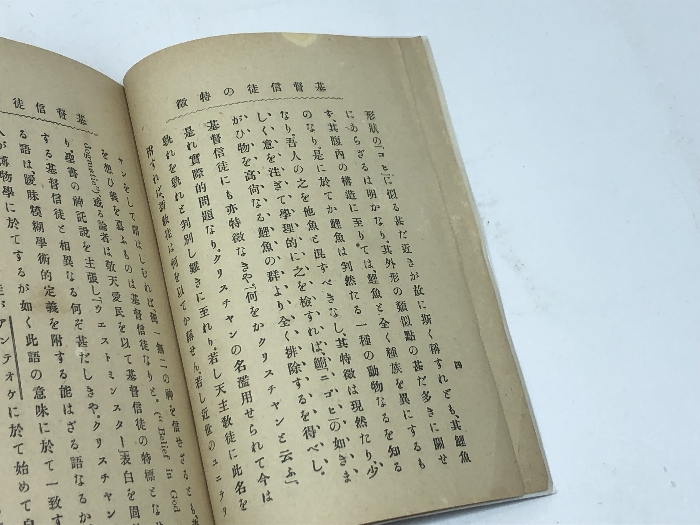 基督信徒の特徴
四
形狀の「コヒ」に似る甚だ近きが故に斯く稱すれども、其鯉魚
にあらざるは明かなり、其外形の類似點の甚だ多きに關せ
ず、其腹內の構造に至りては、鯉魚と全く種族を異にするも
のなり、是に於てか鯉魚は判然たる一種の動物なるを知る
なり、吾人の之を他魚と混ずべきなし、其特徵は現然たり、少
しく意を注ぎて學理的に之を檢すれば、(ニゴヒ)の如きま
がひ物を高尙なる鯉魚の群より全く排除するを得べし。
基督信徒にも亦特徵なきや、何をかクリスチャンと云ふ、
是れ實際的問題なり、クリスチャンの名濫用せられて今は
孰れを孰れと判別し難きに至れり、若し天主敎徒に此名を
附すれば、新敎徒は何を以てか稱せん、若し近世のユニテリ
基督信徒
ヤンをして謂はしむれば獨一無二の神を信ぜざるとも
を慕ひ義を喜ぶものは基督信徒なりと、("Belief in God
dogmatic") 或る論者は敬天愛民を以て基督信徒の特標とな
り聖書の神託說を主張し「ウエストミンスター」表白を固
する基督信徒と相異なる何ぞ甚だしきや、クリスチャン
る語は、曖昧糢糊學術的定義を附する能はざる語なるか
人が博物學に於てするが如く此語の意味に於て一致す
アンテオケに於て始めて